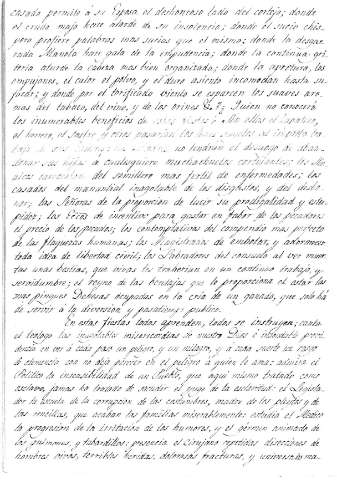 casada permite a su Esposo el deshonroso lado del cortejo; donde
el crudo majo hace alarde de su insolencia; donde el sucio chis-
pero profiere palabras mas sucias que el mismo; donde la desga-
rrada Manola hace gala de la impudencia; donde la continua gri-
teria aturde la cabeza mas bien organizada; donde la apretura, los
empujones, el calor, el polvo, y el duro asiento incomodan hasta su-
focar; y donde por el inficionado viento se esparcen los suaves aro-
mas del tabaco, del vino, y de los orines &c? Quien no conocerá
los innumerables beneficios de estas fiestas? Sin ellas el Zapatero,
el herrero, el sastre y otros pasarian los
no tendrian el desahogo de aban-
donar sus niñas a qualesquiera mochachuelos los Me-
dicos carecerian del semillero mas fertil de enfermedades; los
casados del manantial inagotable de los disgustos, y del desho-
nor; las Señoras de la proporcion de lucir su prodigalidad y estu-
pidez; los de incentivos para gastar en fabor de los pecadores
el precio de los pecados; los contemplativos del compendio mas perfecto
de las flaquezas humanas; los Magistrados de embotar, y adormecer
toda idea de libertad civil; los Labradores del consuelo al ver muer-
tas unas bestias, que vivas les traherian en un continuo trabajo, y
servidumbre; el reyno de las bentajas que le proporciona el estar los
mas pingues Dehesas ocupadas en la cria de un ganado, que solo ha
de servir a la diversion y pasatiempo publico.
En estas fiestas todos aprenden, todos se instruyen; canta
el teologo las inagotables misericordias de nuestro Dios e infalible provi-
dencia en ver a cada paso un peligro, y un milagro, y a cada suerte un rasgo
de clemencia con no dexa perecer en el peligro a quien le ama; admira el
Politico la insensibilidad de un Pueblo, que aqui mismo tratado como
esclavo, jamas ha tratado de sacudir el yugo de la esclavitud: el Legisla-
dor la escuela de la corrupcion de las costumbres, madre de los pleytos y de
las rencillas, que acaban las familias miserablemente: estudia el Medico
la progresion de la irritacion de los humores, y el germen animado de
las pulmonias, y tabardillos: presencia el cirujano repetidas disecciones de
hombres vivos, terribles heridas, dolorosas fracturas, y universal ma-